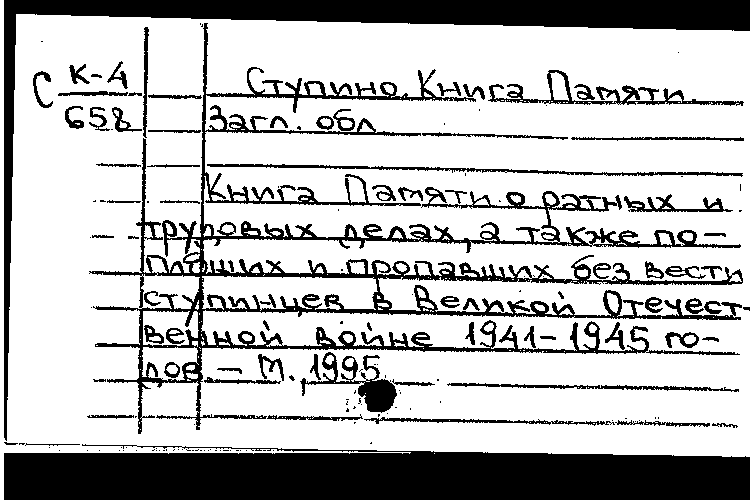 С К-4
658
Ступино. Книга Памяти.
Загл. обл
Книга Памяти о ратных и
трудовых делах, а также по-
гибших и пропавших без вести
ступинцев в Великой Отечест-
венной войне 1941-1945 го-
дов. - М., 1995